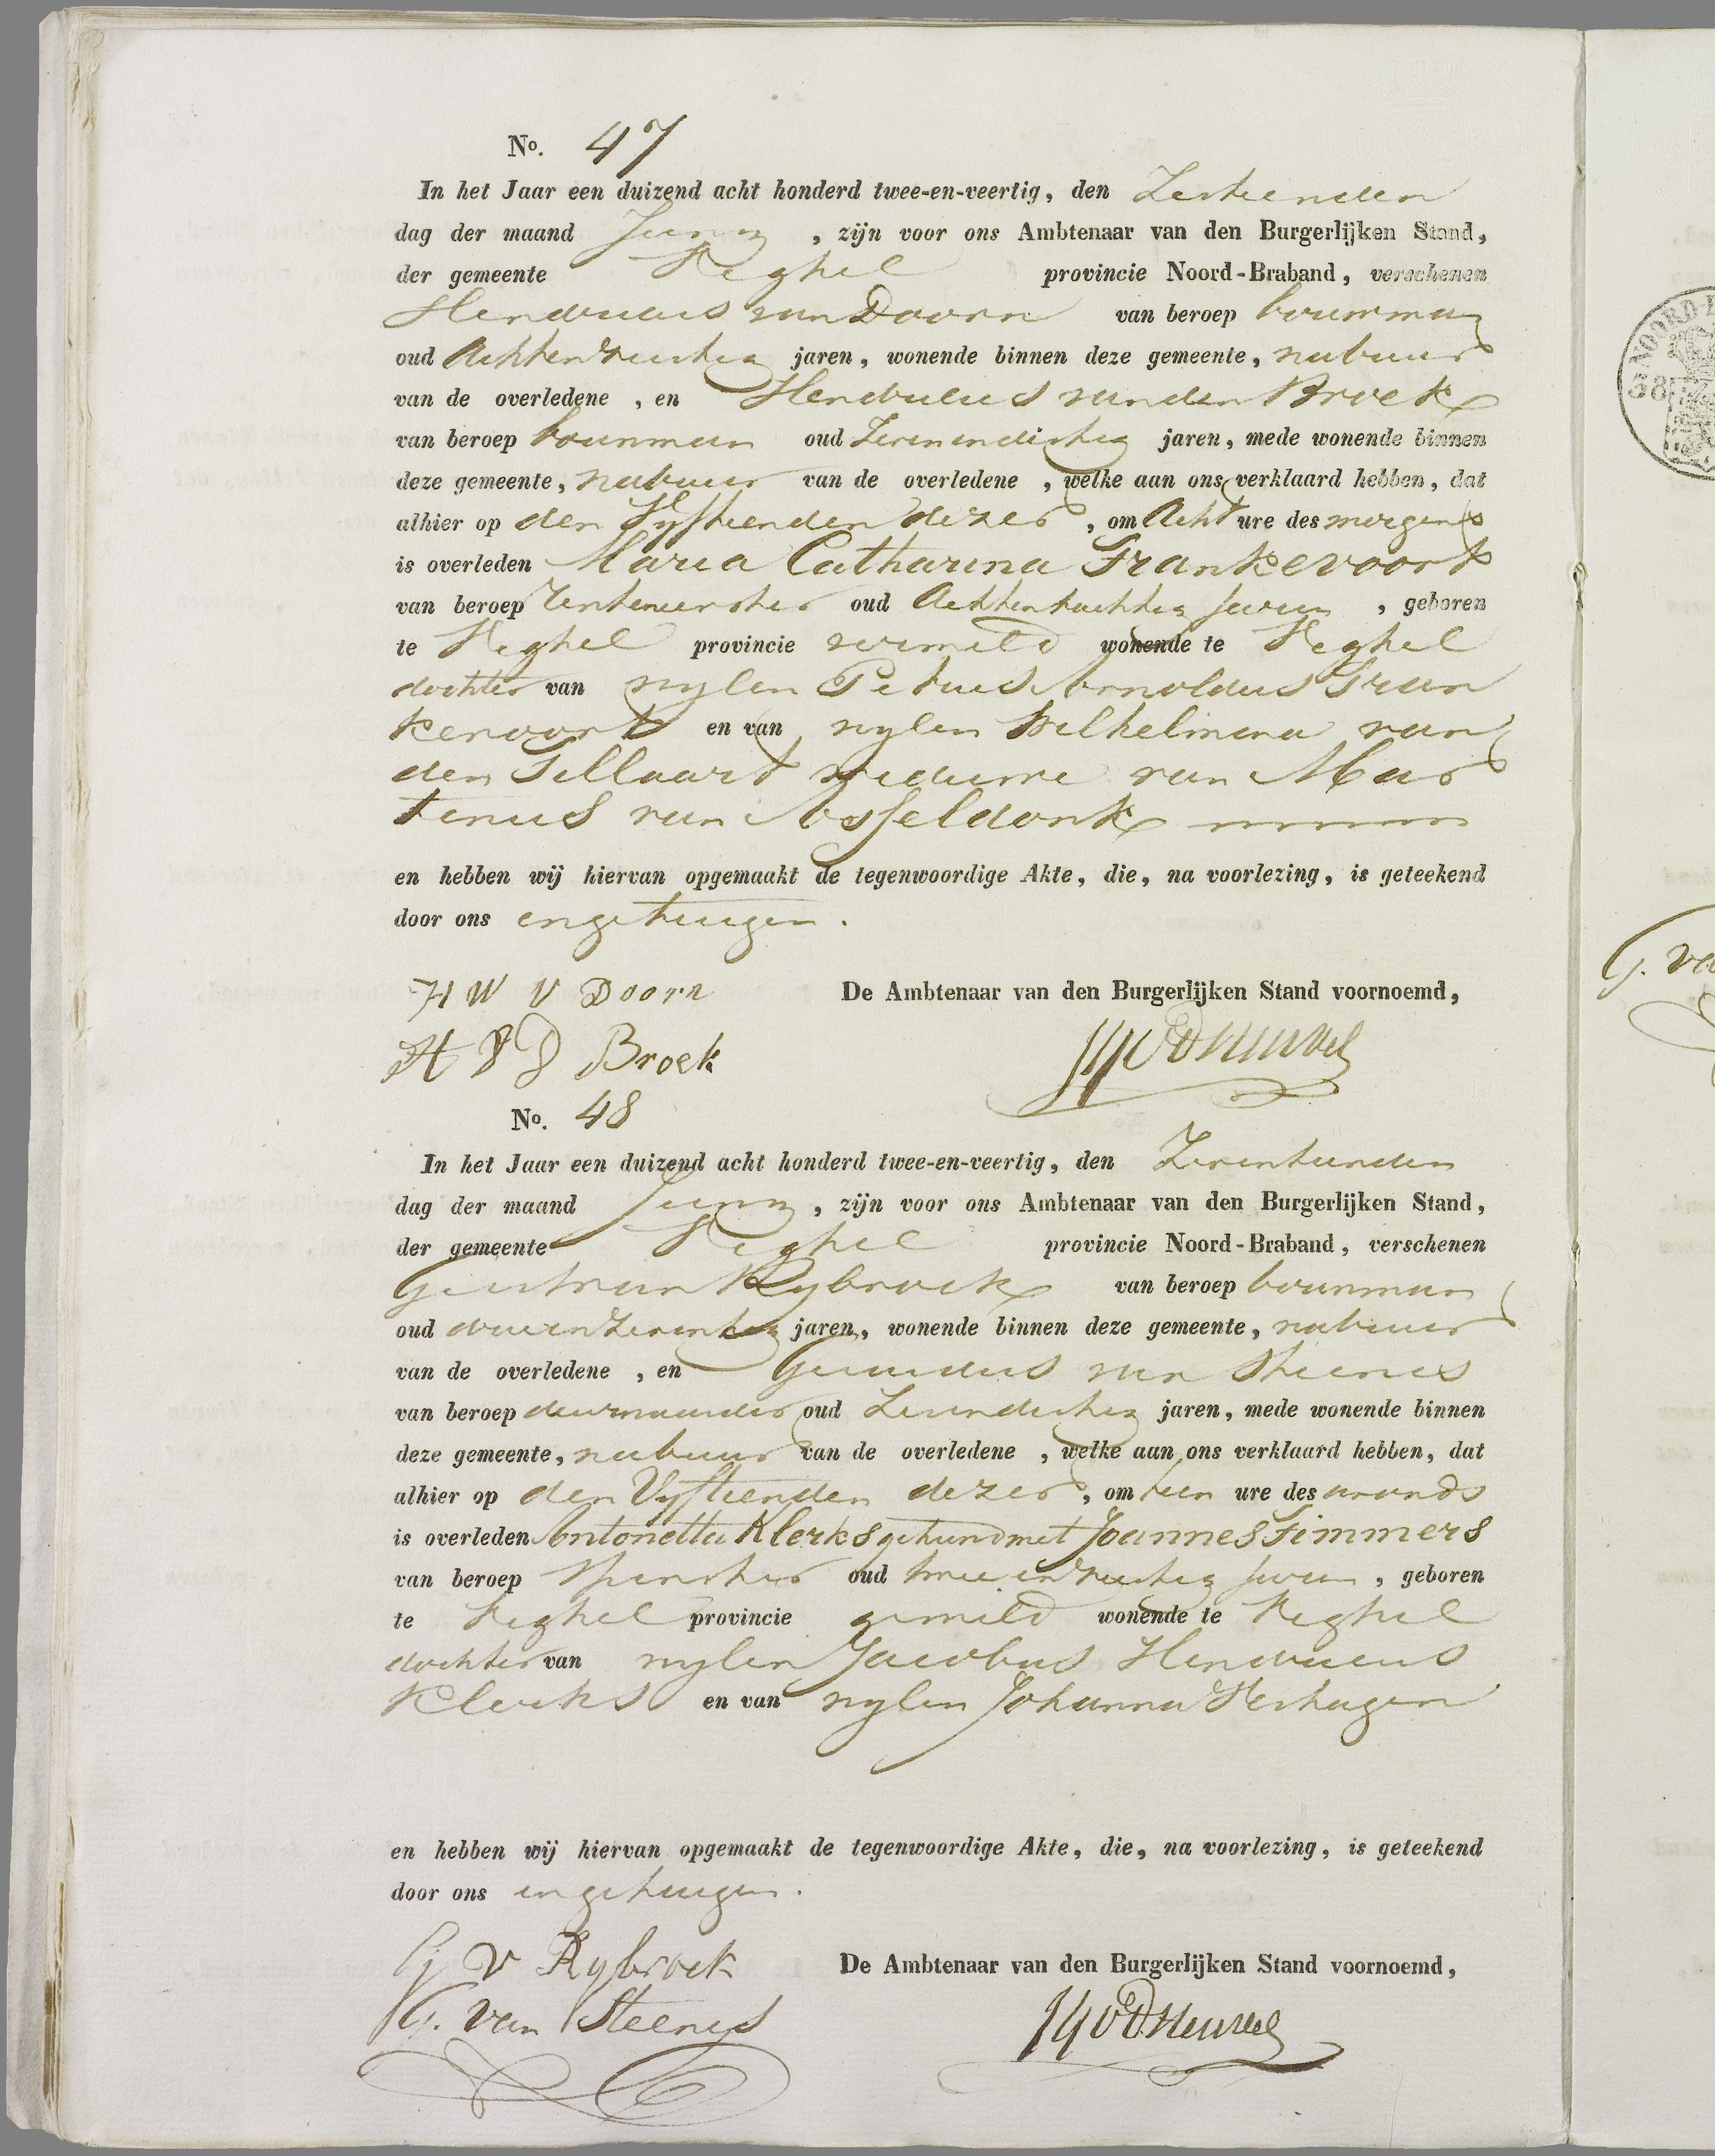 No. 47
In het Jaar een duizend acht honderd twee-en-veertig, den Zestienden
dag der maand Juny, zijn voor ons Ambtenaar van den Burgerlijken Stand,
der gemeente Veghel provincie Noord-Braband, verschenen
Hendricus van Doorn van beroep bouwman
oud Achtenveertig jaren, wonende binnen deze gemeente, nabuur
van de overledene, en Hendricus van den Broek
van beroep bouwman oud Zevenendertig jaren, mede wonende binnen
deze gemeente, nabuur van de overledene, welke aan ons verklaard hebben, dat
alhier op den Vyftienden dezer, om Acht ure des morgens
is overleden Maria Catharina Frankevoort
van beroep Rentenierster oud Achtentachtig jaren, geboren
te Veghel provincie vermeld wonende te Veghel
dochter van wylen Petrus Arnoldus Fran
kevoort en van wylen Wilhelmina van
den Tillaart weduwe van Mar
tinus van Asseldonk
en hebben wij hiervan opgemaakt de tegenwoordige Akte, die, na voorlezing, is geteekend
door ons en getuigen.
H W V Doorn De Ambtenaar van den Burgerlijken Stand voornoemd,
H V D Broek vd Heuvel
No. 48
In het Jaar een duizend acht honderd twee-en-veertig, den Zeventienden
dag der maand Juny, zijn voor ons Ambtenaar van den Burgerlijken Stand,
der gemeente Veghel provincie Noord-Braband, verschenen
Geert van Rybroek van beroep bouwman
oud drieenzeventig jaren, wonende binnen deze gemeente, nabuur
van de overledene, en Gerardus van Steenes
van beroep deurwaarder oud Zesendertig jaren, mede wonende binnen
deze gemeente, nabuur van de overledene, welke aan ons verklaard hebben, dat
alhier op den Vyftienden dezer, om tien ure des avonds
is overleden Antonetta Klerks gehuwd met Joannes Timmers
van beroep Spinster oud twee en veertig jaren, geboren
te Veghel provincie gemeld wonende te Veghel
dochter van wylen Jacobus Hendricus
Klerks en van wylen Johanna Verhagen
en hebben wij hiervan opgemaakt de tegenwoordige Akte, die, na voorlezing, is geteekend
door ons en getuigen.
G v Rybroek De Ambtenaar van den Burgerlijken Stand voornoemd,
G. van Steenes vd Heuvel